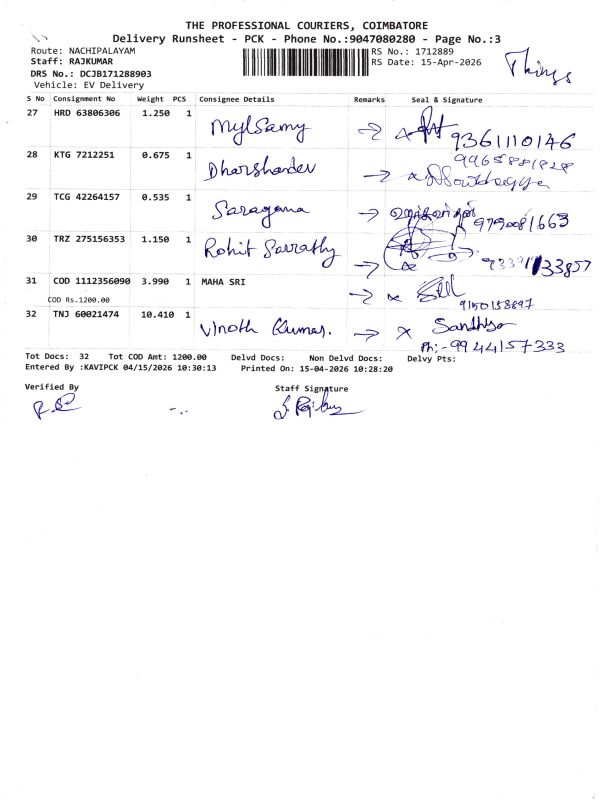 THE PROFESSIONAL COURIERS, COIMBATORE
Delivery Runsheet - PCK - Phone No.:9047080280 - Page No.:3
Route: NACHIPALAYAM
RS No.: 1712889
Staff: RAJKUMAR
RS Date: 15-Apr-2026
Things
DRS No.: DCJB171288903
Vehicle: EV Delivery
S No Consignment No Weight PCS Consignee Details Remarks Seal & Signature
27 HRD 63806306 1.250 1 Mylsamy 9361110146
28 KTG 7212251 0.675 1 Dharshandev
29 TCG 42264157 0.535 1 Saragana 9790081663
30 TRZ 275156353 1.150 1 Rohit Sarrathy
31 COD 1112356090 3.990 1 MAHA SRI
COD Rs.1200.00
9150158897
32 TNJ 60021474 10.410 1 Vinoth Kumar. x Sandhya
Ph:- 9944157333
Tot Docs: 32 Tot COD Amt: 1200.00 Delvd Docs: Non Delvd Docs: Delvy Pts:
Entered By :KAVIPCK 04/15/2026 10:30:13 Printed On: 15-04-2026 10:28:20
Verified By
Staff Signature